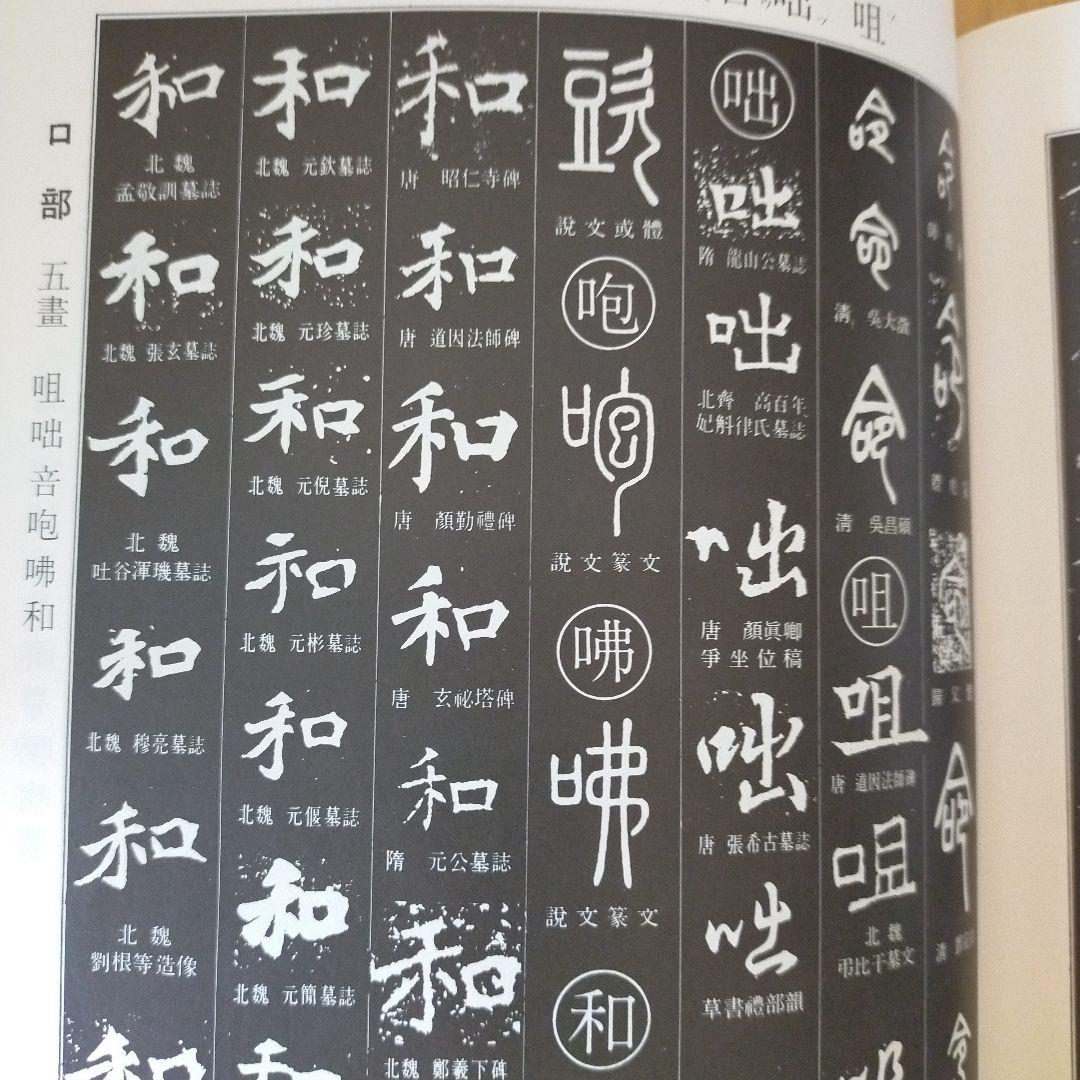 口部 五畫 咀咄咅咆咈和
咀
命
命
清 吳大澂
命
清 吳昌碩
咀
咀
唐 道因法師碑
咀
北魏
弔比干墓文
咄
咄
隋 龍山公墓誌
咄
北齊 高百年
妃斛律氏墓誌
咄
唐 顏眞卿
爭坐位稿
咄
唐 張希古墓誌
咄
草書禮部韻
說文或體
咆
咆
說文篆文
咈
咈
說文篆文
和
和
唐 昭仁寺碑
和
唐 道因法師碑
和
唐 顏勤禮碑
和
唐 玄祕塔碑
和
隋 元公墓誌
和
北魏 鄭羲下碑
和
北魏 元欽墓誌
和
北魏 元珍墓誌
和
北魏 元倪墓誌
和
北魏 元彬墓誌
和
北魏 元偃墓誌
和
北魏 元簡墓誌
和
和
北魏
孟敬訓墓誌
和
北魏 張玄墓誌
和
北魏
吐谷渾璣墓誌
和
北魏 穆亮墓誌
和
北魏
劉根等造像
和